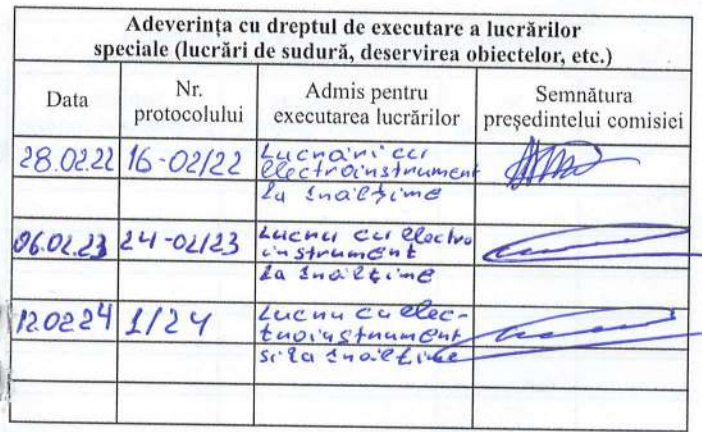 Adeverința cu dreptul de executare a lucrărilor
speciale (lucrări de sudură, deservirea obiectelor, etc.)
Data
Nr.
protocolului
Admis pentru
executarea lucrărilor
Semnătura
președintelui comisiei
28.02.22 16-02/22 Lucrări cu
electroinstrument
la înălțime
06.02.23 24-02/23 Lucru cu electro
instrument
la înălțime
12.02 24 1/24 Lucru cu elec-
troinstrument
si la înălțime